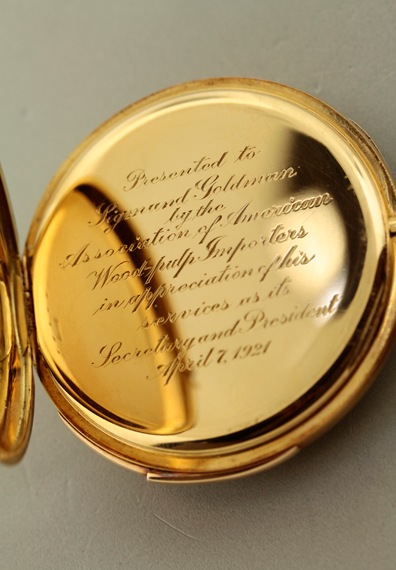 Presented to
Sigmund Goldman
by the
Association of American
Wood-pulp Importers
in appreciation of his
services as its
Secretary and President
April 7, 1921